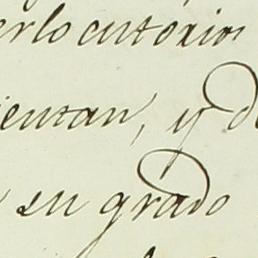 erlocutorios
ientan, y d
su grado